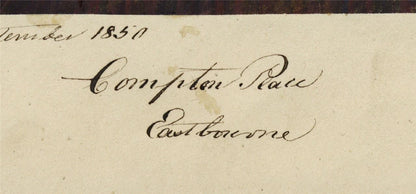 tember 1850
Compton Place
Eastbourne